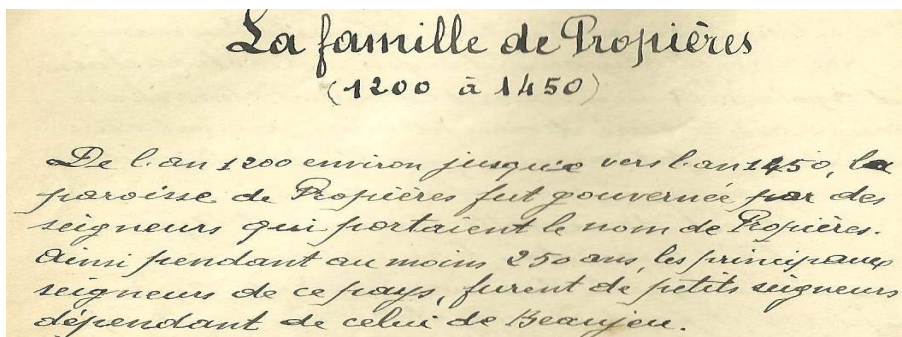 La famille de Propières
(1200 à 1450)
De l'an 1200 environ jusque vers l'an 1450, la
paroisse de Propières fut gouvernée par des
seigneurs qui portaient le nom de Propières.
Ainsi pendant au moins 250 ans, les principaux
seigneurs de ce pays, furent de petits seigneurs
dépendant de celui de Beaujeu.